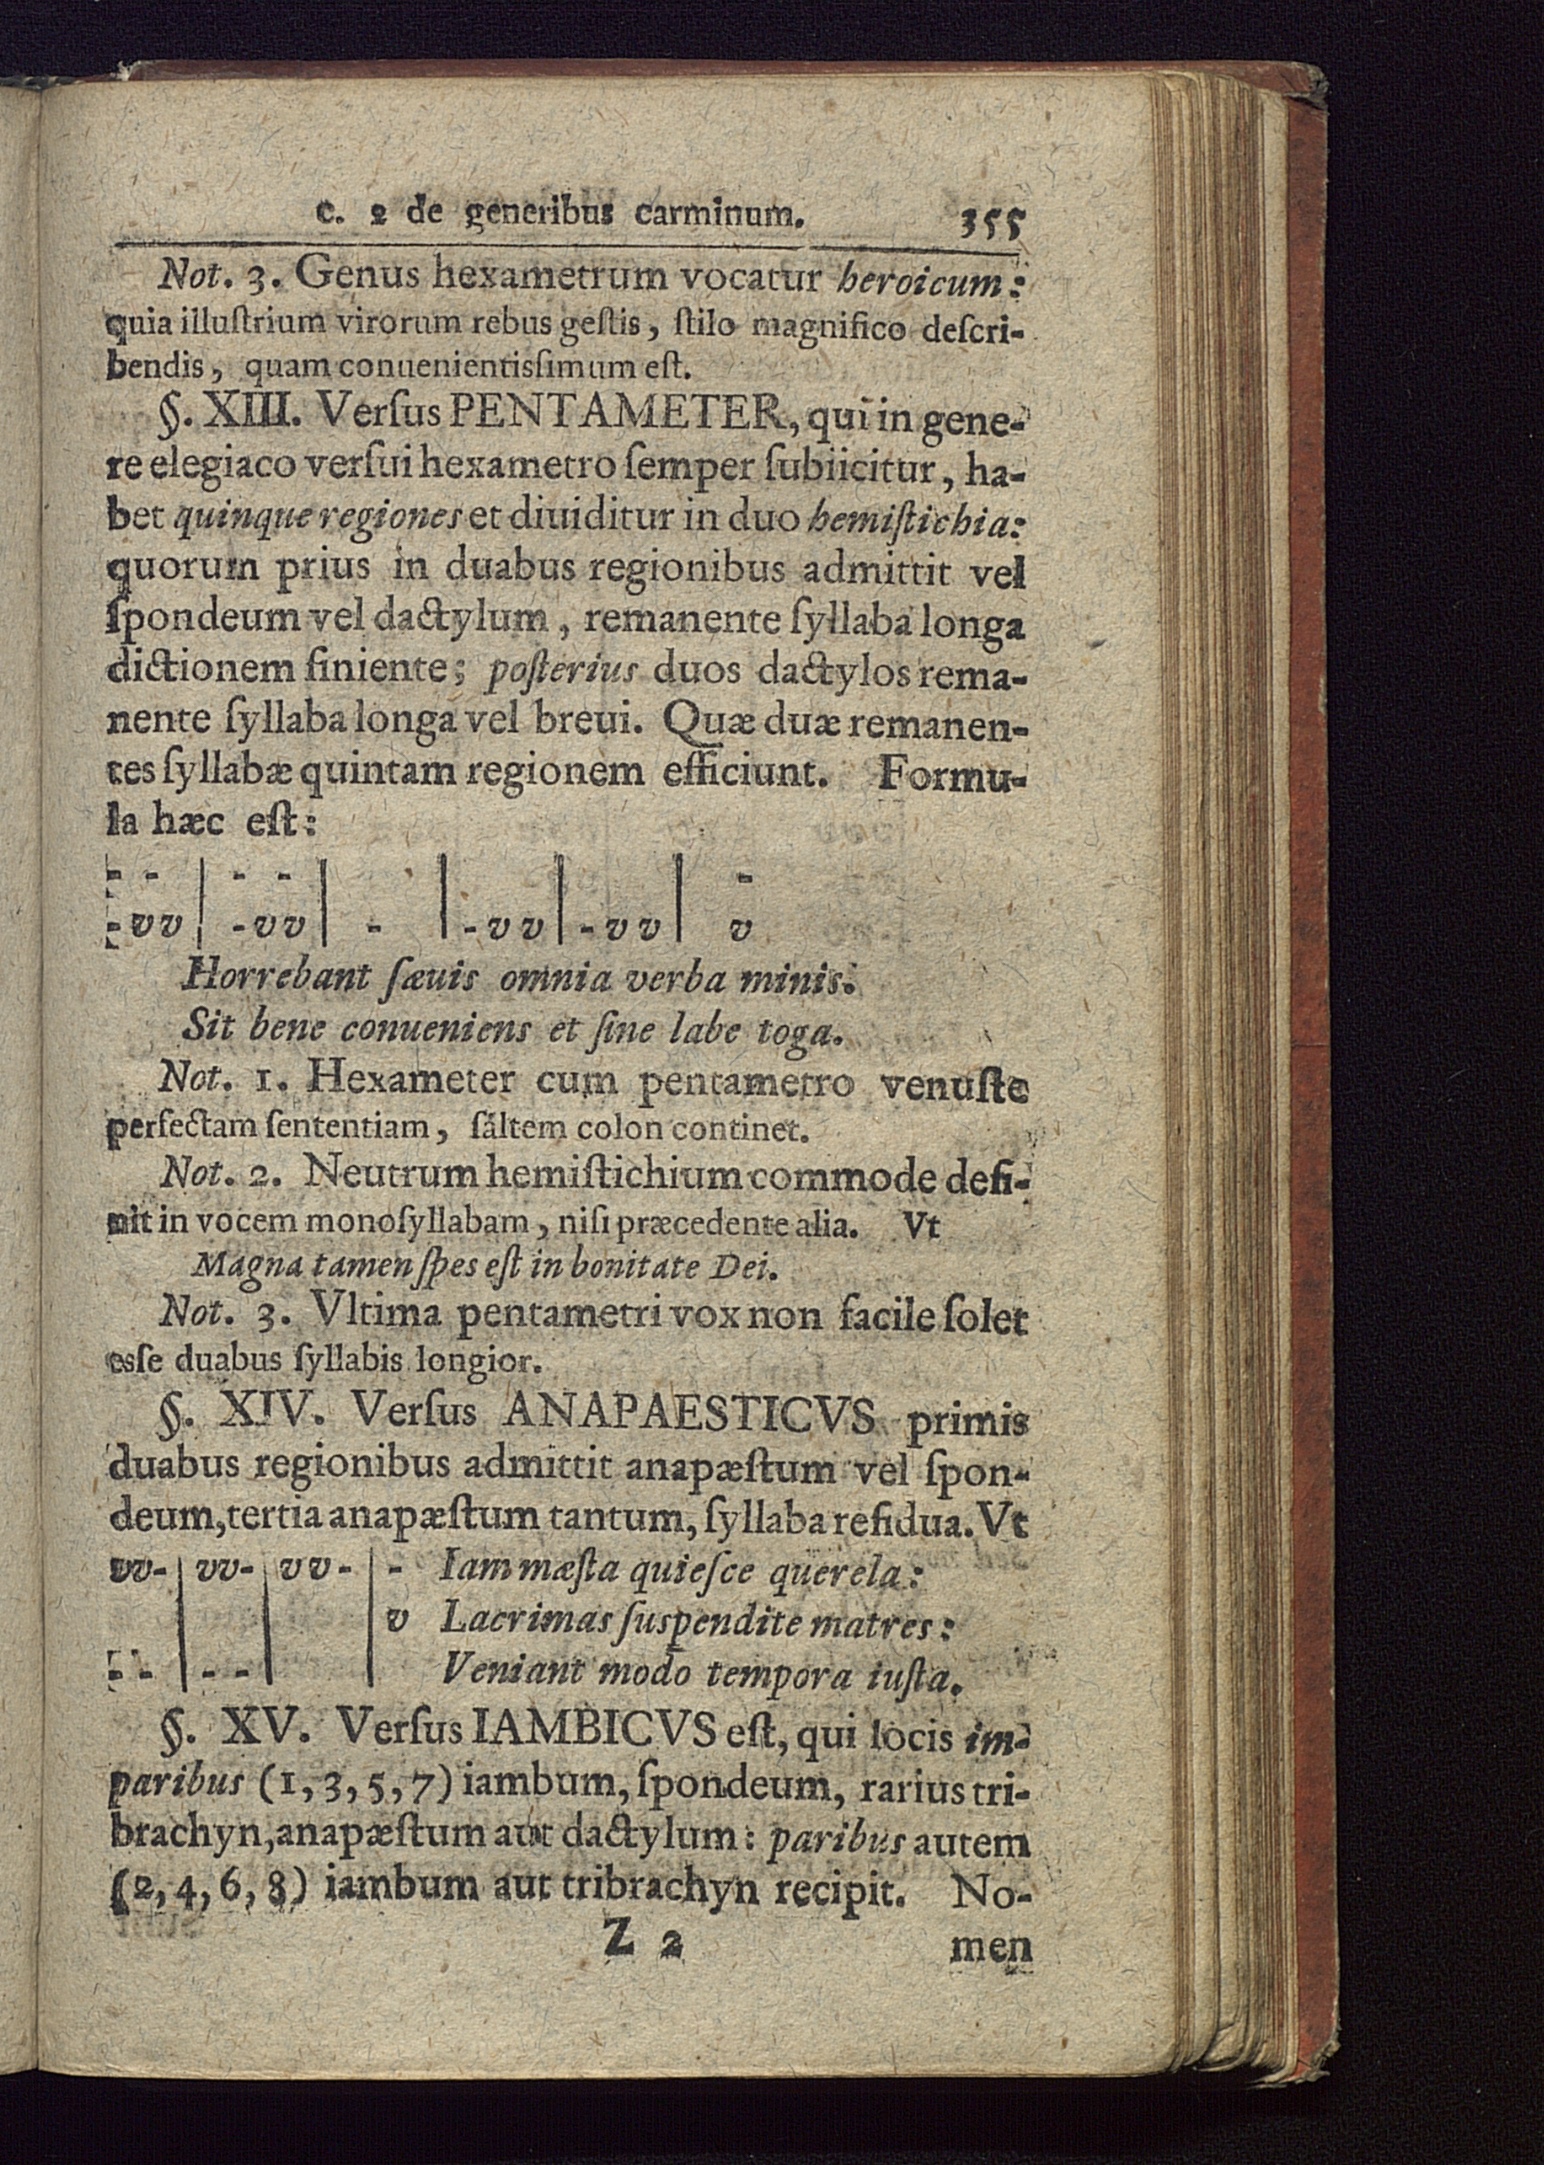 c. 2 de generibus carminum. 355
Not. 3. Genus hexametrum vocatur heroicum:
quia illuſtrium virorum rebus geſtis, ſtilo magnifico deſcri-
bendis, quam conuenientisſimum eſt.
§. XIII. Verſus PENTAMETER, qui in gene-
re elegiaco verſui hexametro ſemper ſubiicitur, ha-
bet quinque regiones et diuiditur in duo hemiſtichia:
quorum prius in duabus regionibus admittit vel
ſpondeum vel dactylum, remanente ſyllaba longa
dictionem finiente; poſterius duos dactylos rema-
nente ſyllaba longa vel breui. Quæ duæ remanen-
tes ſyllabæ quintam regionem efficiunt. Formu-
la hæc eſt:
- - | - - | | | | -
- v v | - v v | - | - v v | - v v | v
Horrebant ſæuis omnia verba minis.
Sit bene conueniens et ſine labe toga.
Not. 1. Hexameter cum pentametro venuſte
perfectam ſententiam, ſaltem colon continet.
Not. 2. Neutrum hemiſtichium commode defi-
nit in vocem monoſyllabam, niſi præcedente alia. Vt
Magna tamen ſpes eſt in bonitate Dei.
Not. 3. Vltima pentametri vox non facile ſolet
esſe duabus ſyllabis longior.
§. XIV. Verſus ANAPAESTICVS primis
duabus regionibus admittit anapæſtum vel ſpon-
deum, tertia anapæſtum tantum, ſyllaba reſidua. Vt
vv- | vv- | vv- | - Iam mæſta quieſce querela:
| | | v Lacrimas ſuspendite matres:
- - | - - | | Veniant modo tempora iuſta.
§. XV. Verſus IAMBICVS eſt, qui locis im-
paribus (1, 3, 5, 7) iambum, ſpondeum, rarius tri-
brachyn, anapæſtum aut dactylum: paribus autem
(2, 4, 6, 8) iambum aut tribrachyn recipit. No-
Z 2 men